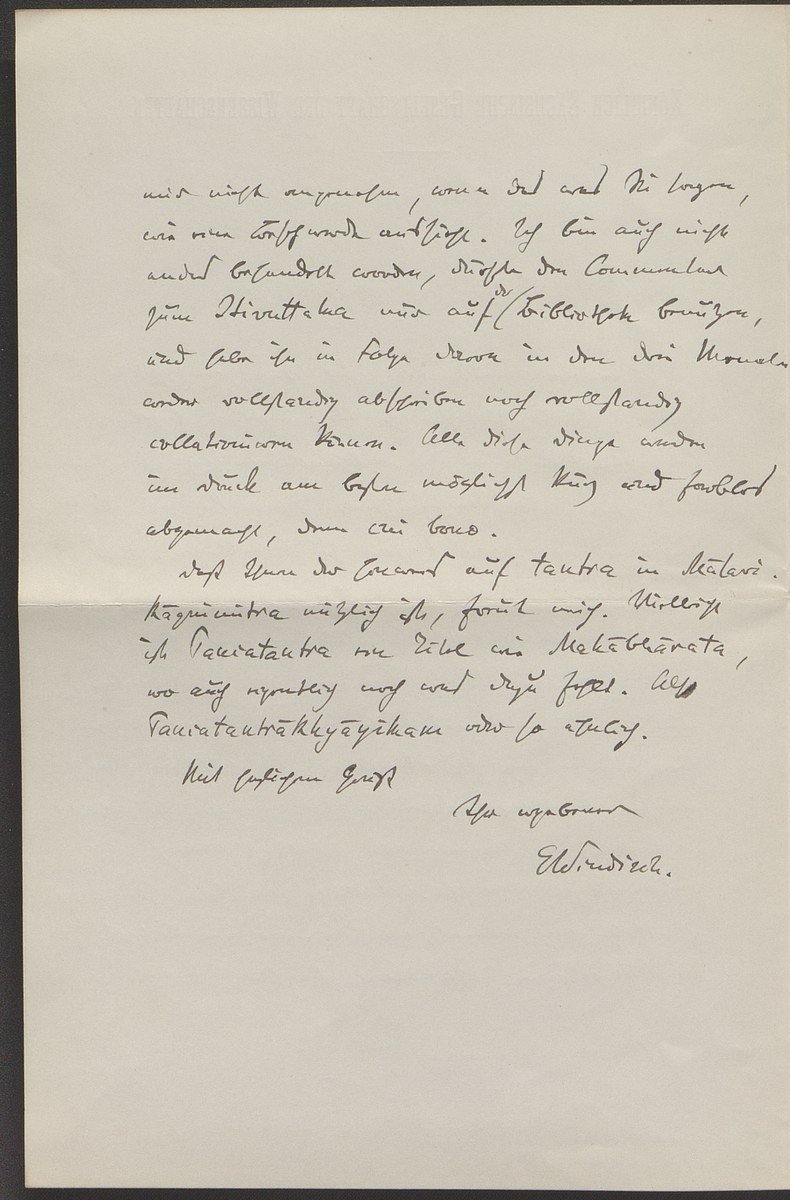 mir nicht angenehm, wenn das was Sie sagen,
wie eine Beschwerde aussieht. Ich bin auch nicht
anders behandelt worden, durfte den Commentar
zum Itivuttaka nur auf der Bibliothek benutzen,
und habe ihn in Folge davon in den drei Monaten
weder vollständig abschreiben noch vollständig
collationieren können. Alle diese Dinge werden
im Druck am besten möglichst kurz und farblos
abgemacht, denn cui bono.
Daß Ihnen der Hinweis auf tantra in Mālavi-
kāgnimitra nützlich ist, freut mich. Vielleicht
ist Pancatantra ein Titel wie Mahābhārata,
wo auch eigentlich noch was dazu fehlt. Also
Pancatantrākhyāyikam oder so ähnlich.
Mit herzlichem Gruß
Ihr ergebener
EWindisch.